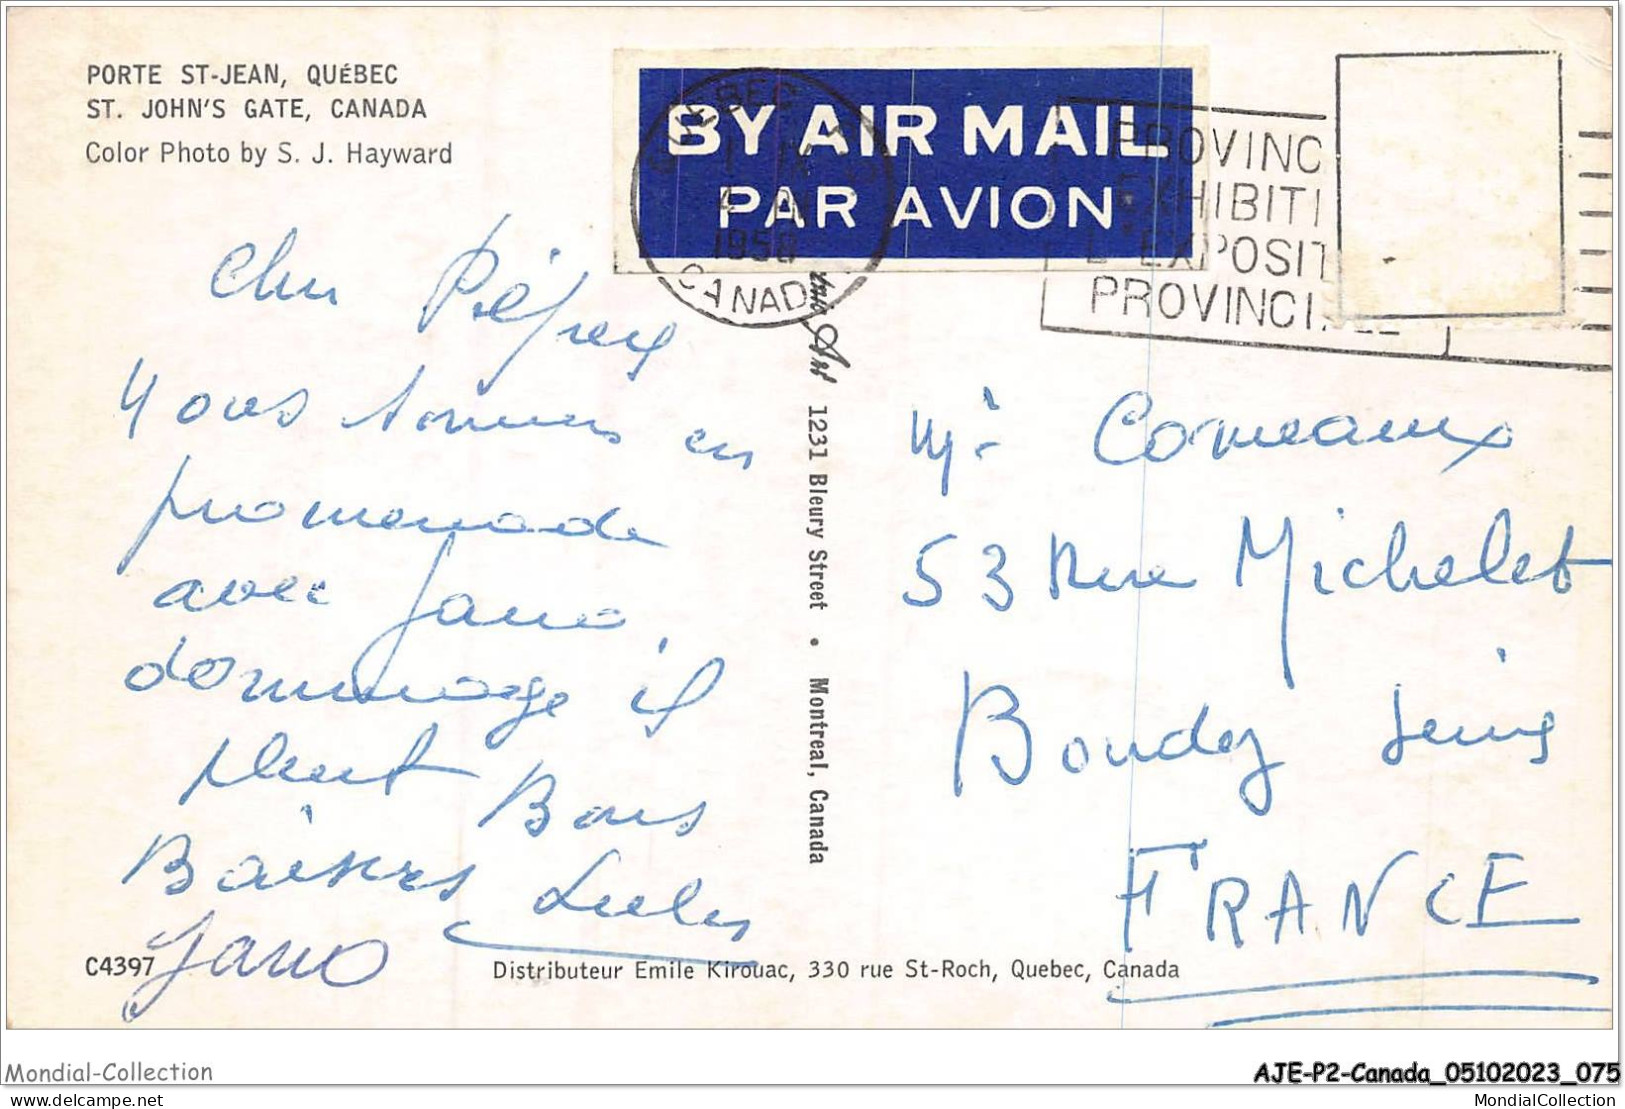 PORTE ST-JEAN, QUÉBEC
ST. JOHN'S GATE, CANADA
Color Photo by S. J. Hayward
BY AIR MAIL
PAR AVION
QUEBEC
1958
CANADA
PROVINC
EXHIBITI
L'EXPOSIT
PROVINCI
Cher
Nous sommes en
promenade
avec Jano,
dommage il
pleut Bons
Baisers
Jano
Art 1231 Bleury Street • Montreal, Canada
Mr Comeaux
53 Rue Michelet
Bondy Seine
FRANCE
C4397
Distributeur Emile Kirouac, 330 rue St-Roch, Quebec, Canada
Mondial-Collection
AJE-P2-Canada_05102023_075
delcampe.net
MondialCollection